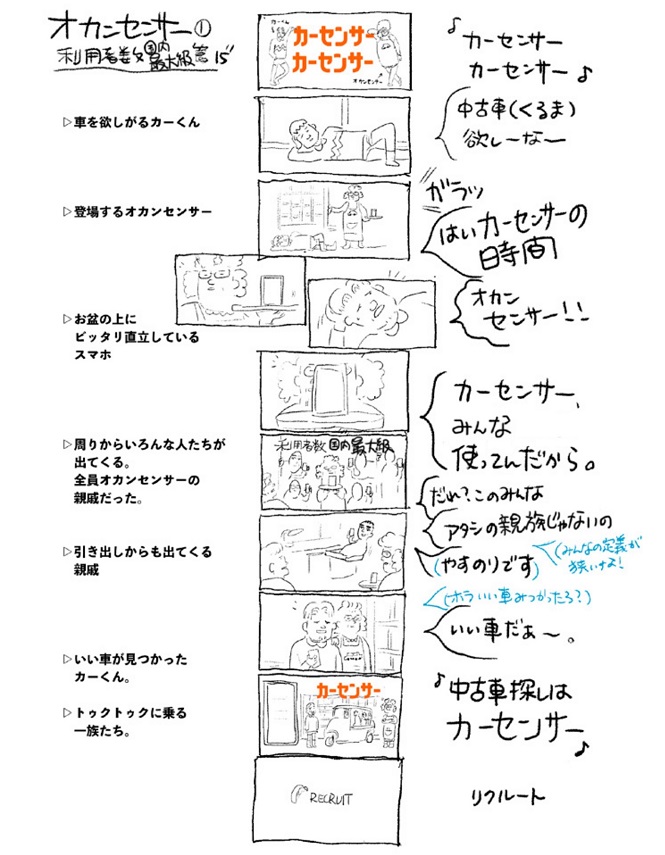 オカンセンサー①
利用者数国内最大級篇 15"
カーくん
カーセンサー
カーセンサー
オカンセンサー
♪カーセンサー
カーセンサー♪
▷車を欲しがるカーくん
中古車(くるま)
欲しーなー
▷登場するオカンセンサー
ガラッ
はいカーセンサーの
時間
オカン
センサー!!
▷お盆の上に
ビッタリ直立している
スマホ
カーセンサー、
みんな
使ってんだから。
▷周りからいろんな人たちが
出てくる。
全員オカンセンサーの
親戚だった。
利用者数 国内最大級
だれ?このみんな
アタシの親族じゃないの
▷引き出しからも出てくる
親戚
(やすのりです)
(みんなの定義が
狭いけよ!
(ホラいい車みつかったろ?)
いい車だぁ〜。
▷いい車が見つかった
カーくん。
▷トゥクトゥクに乗る
一族たち。
カーセンサー
♪中古車探しは
カーセンサー♪
RECRUIT
リクルート